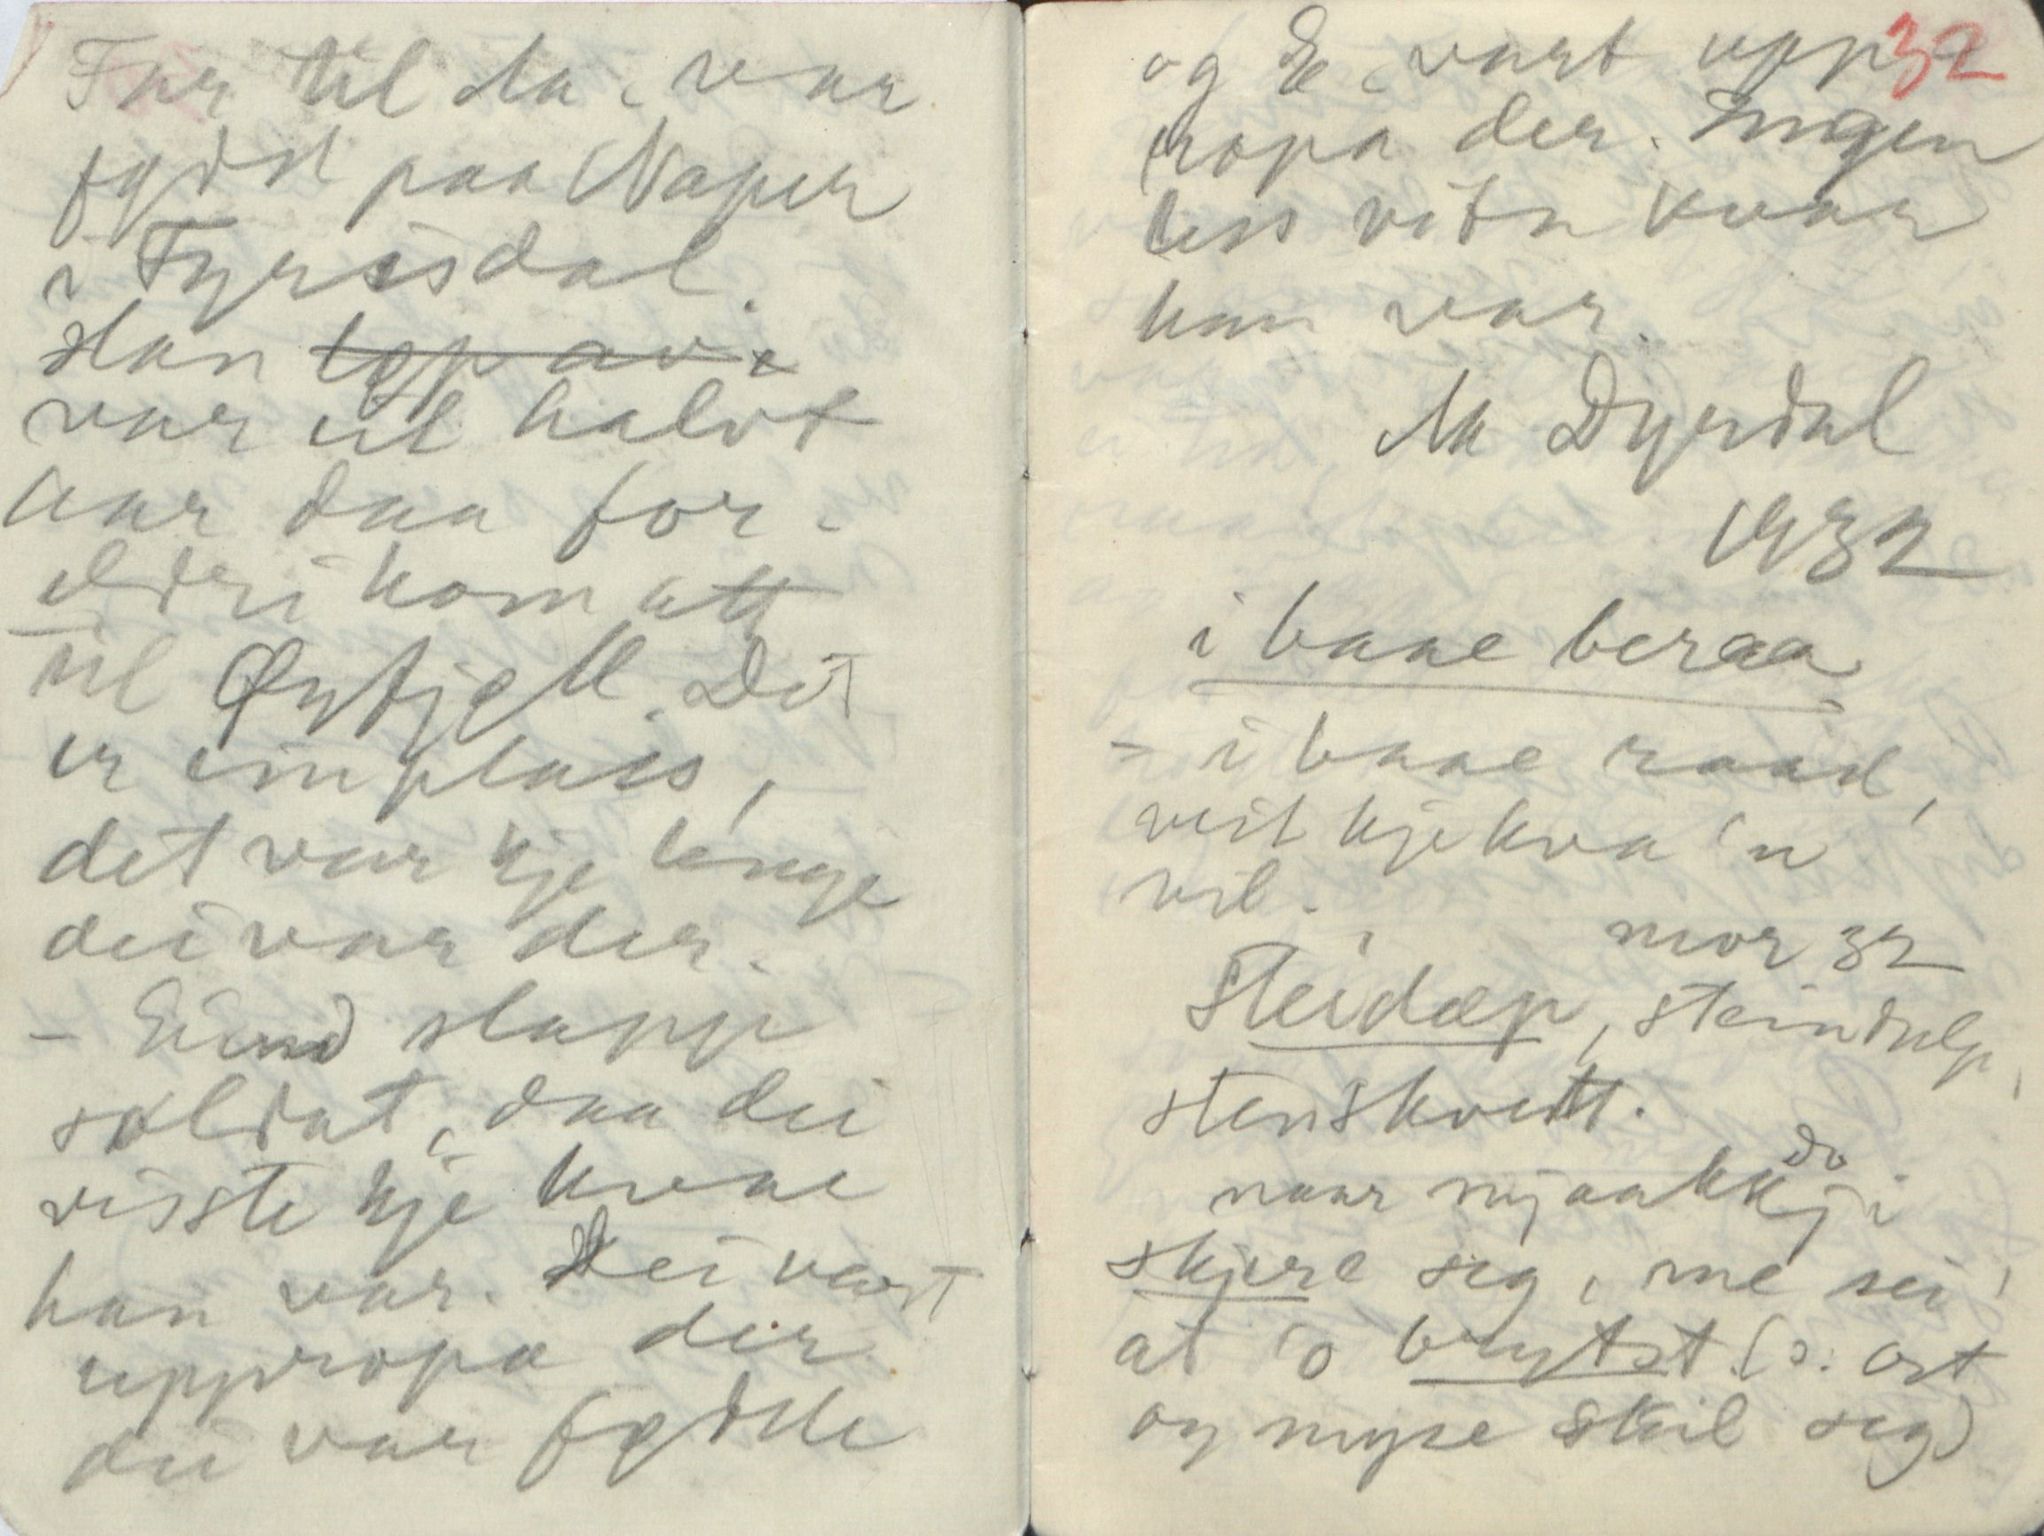 Far til Aa. var
fødd paa Naper
i Fyrisdal.
Han løp av
var eit halvt
aar daa for-
eldri kom att
til Øyfjell. Det
er ein plass,
det var kje lengje
dei var der.
- Eivind slapp
soldat, daa dei
visste kje kvae
han var. Dei vart
uppropa der
dei var fødde
32
og E. vart upp-
ropa der. Ingen
less vita kvar
han var.
Aa Dyrdal
1932
i baae beraa
- i baae raad,
veit kje kva 'n
vil.
mor 32
Steidøp, steindulp,
stenskvett.
naar mjaakkji
do
skjere seg, me sei,
at 'o brytst (ɔ: ost
og myse skil seg)